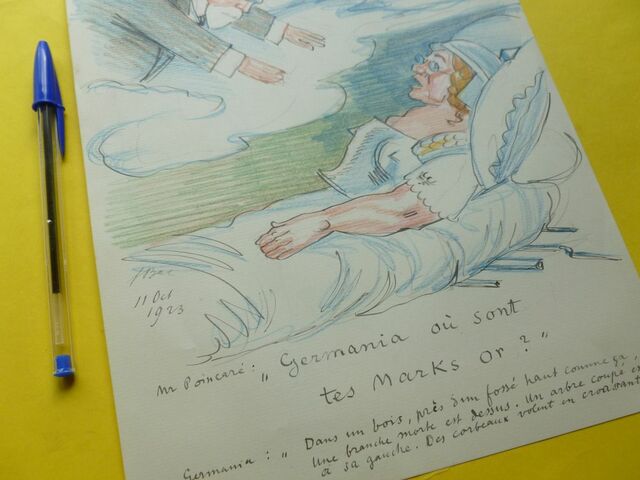 FBac
11 Oct
1923
Mr Poincaré : " Germania où sont
tes Marks or ? "
Germania : " Dans un bois, près d'un fossé haut comme ça,
Une branche morte est dessus. Un arbre coupé est
à sa gauche. Des corbeaux volent en croissant